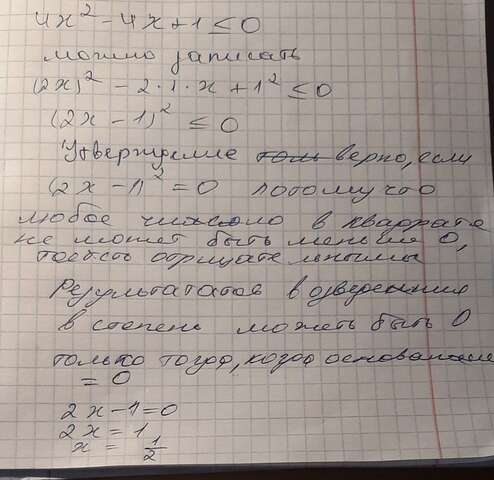 4x² - 4x + 1 ≤ 0
можно записать
(2x)² - 2·1·x + 1² ≤ 0
(2x - 1)² ≤ 0
Утверждение верно, если
(2x - 1)² = 0 потому что
любое число в квадрате
не может быть меньше 0,
тоесть отрицательным
Результатов возведения
в степень может быть 0
только тогда, когда основание
= 0
2x - 1 = 0
2x = 1
x = 1/2